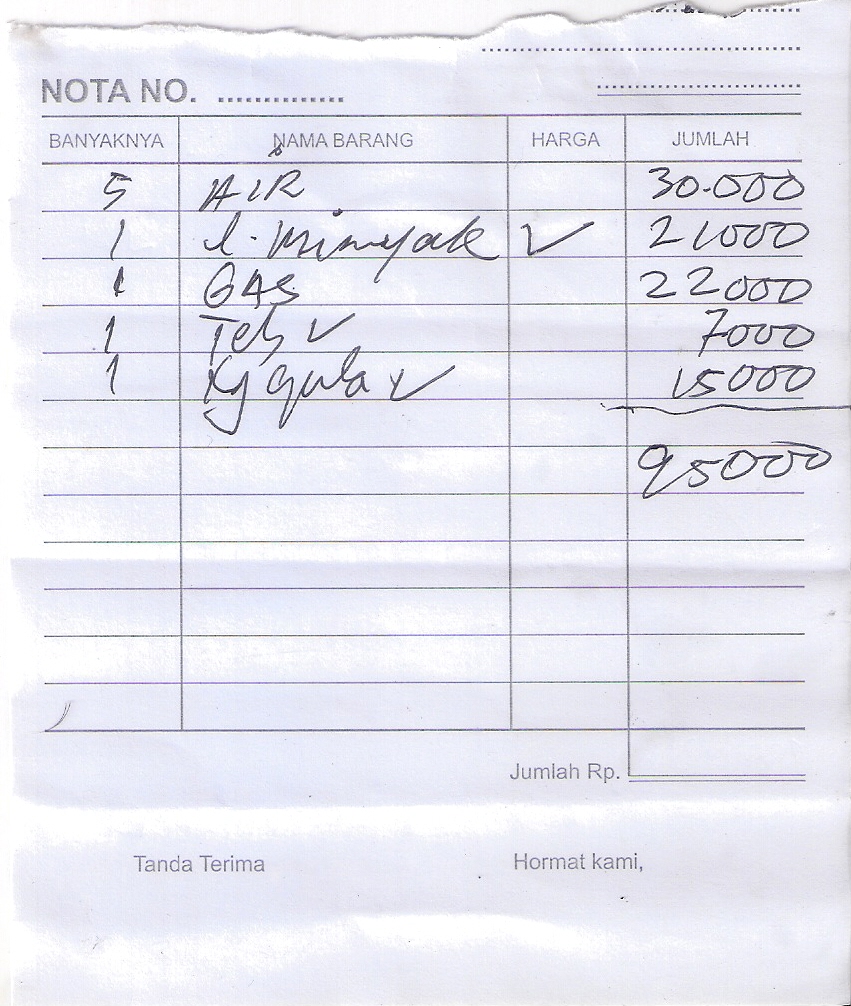 NOTA NO. ..............
BANYAKNYA NAMA BARANG HARGA JUMLAH
5 AIR 30.000
1 l. minyak ✓ 21000
1 GAS 22000
1 Teh ✓ 7000
1 Kg gula ✓ 15000
95000
Jumlah Rp.
Tanda Terima Hormat kami,